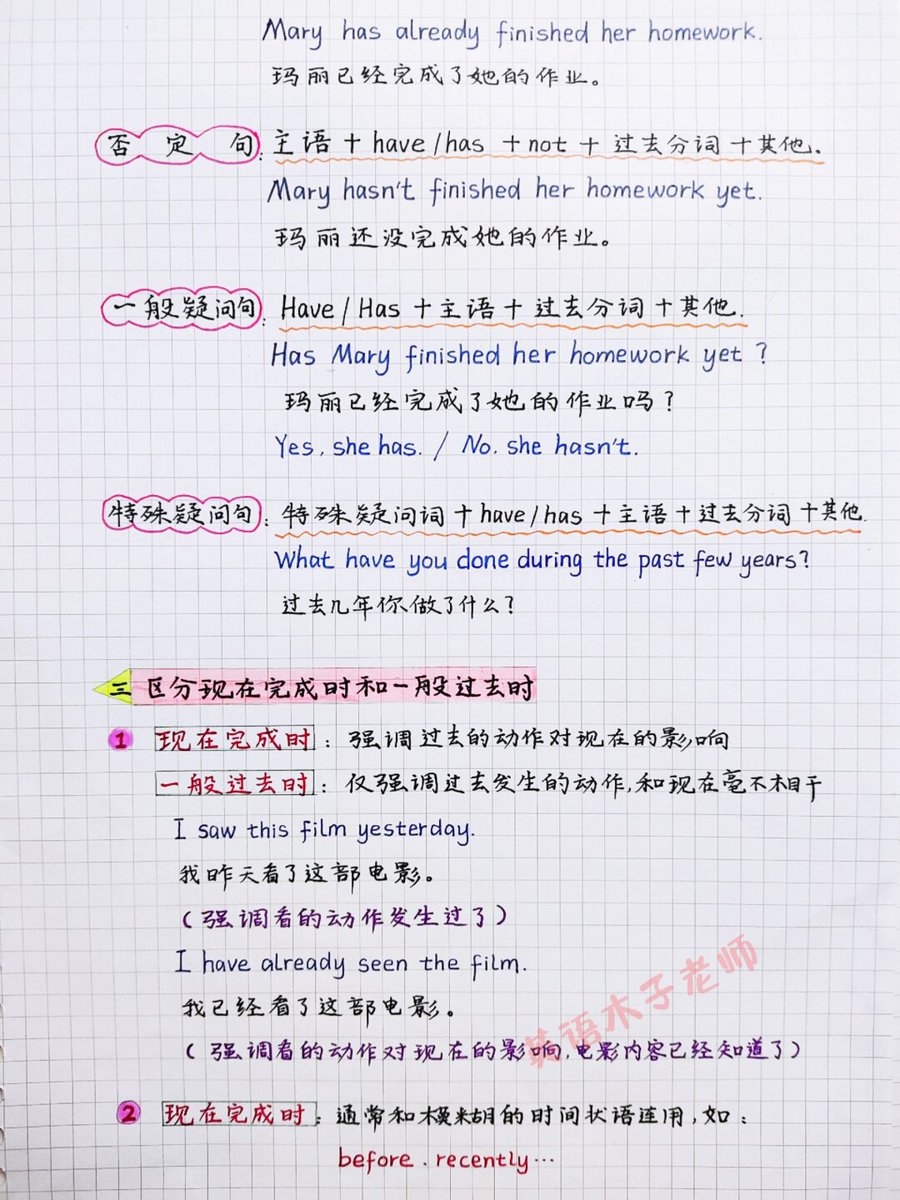 Mary has already finished her homework.
玛丽已经完成了她的作业。
否定句: 主语+have/has+not+过去分词+其他.
Mary hasn't finished her homework yet.
玛丽还没完成她的作业。
一般疑问句: Have/Has+主语+过去分词+其他.
Has Mary finished her homework yet?
玛丽已经完成了她的作业吗?
Yes, she has. / No, she hasn't.
特殊疑问句: 特殊疑问词+have/has+主语+过去分词+其他.
What have you done during the past few years?
过去几年你做了什么?
三 区分现在完成时和一般过去时
1 现在完成时: 强调过去的动作对现在的影响
一般过去时: 仅强调过去发生的动作,和现在毫不相干
I saw this film yesterday.
我昨天看了这部电影。
(强调看的动作发生过了)
I have already seen the film.
我已经看了这部电影。
(强调看的动作对现在的影响,电影内容已经知道了)
英语木子老师
2 现在完成时: 通常和模糊的时间状语连用,如:
before. recently…